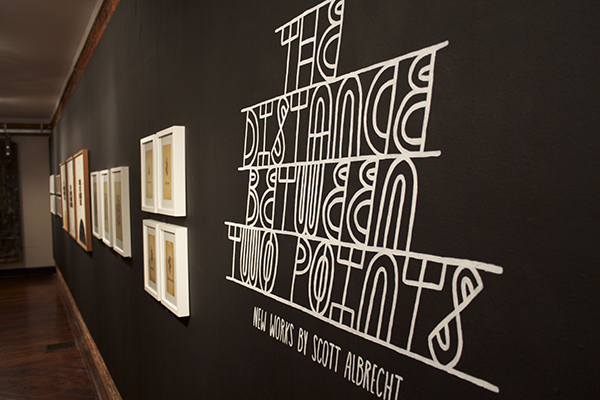 THE
DISTANCE
BETWEEN
TWO POINTS
NEW WORKS BY SCOTT ALBRECHT